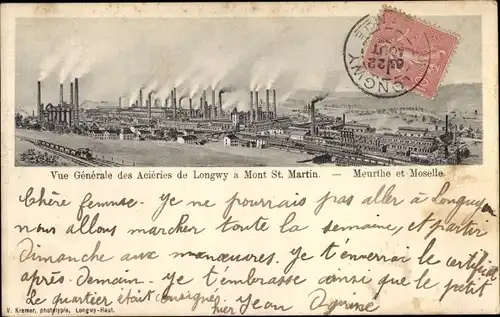 LONGWY
22
AOUT
Vue Générale des Aciéries de Longwy à Mont St. Martin. — Meurthe et Moselle.
Chère femme. Je ne pourrais pas aller à Longuyon
nous allons marcher toute la semaine, et partir
Dimanche aux manœuvres. Je t'enverrai le certificat
après-Demain. Je t'embrasse ainsi que le petit
Le quartier était consigné
hier Jean
V. Kremer, phototypie, Longwy-Haut.